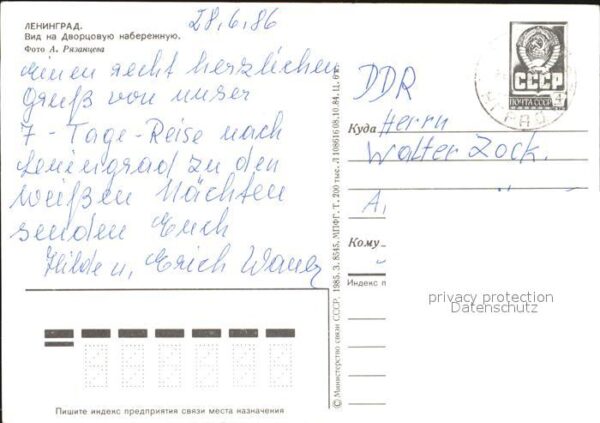 ЛЕНИНГРАД.
Вид на Дворцовую набережную.
Фото А. Рязанцева
28.6.86
einen recht herzlichen
Gruß von unser
7-Tage-Reise nach
Leningrad zu den
weißen Nächten
senden Euch
Hilde u. Erich
DDR
Куда Herrn
Walter Zock.
Кому
Индекс п
СССР
ПОЧТА СССР 4
© Министерство связи СССР. 1985. З. 8545. МПФГ. Т. 200 тыс. Л 108016 08.10.84. Ц. 6 к.
privacy protection
Datenschutz
Пишите индекс предприятия связи места назначения